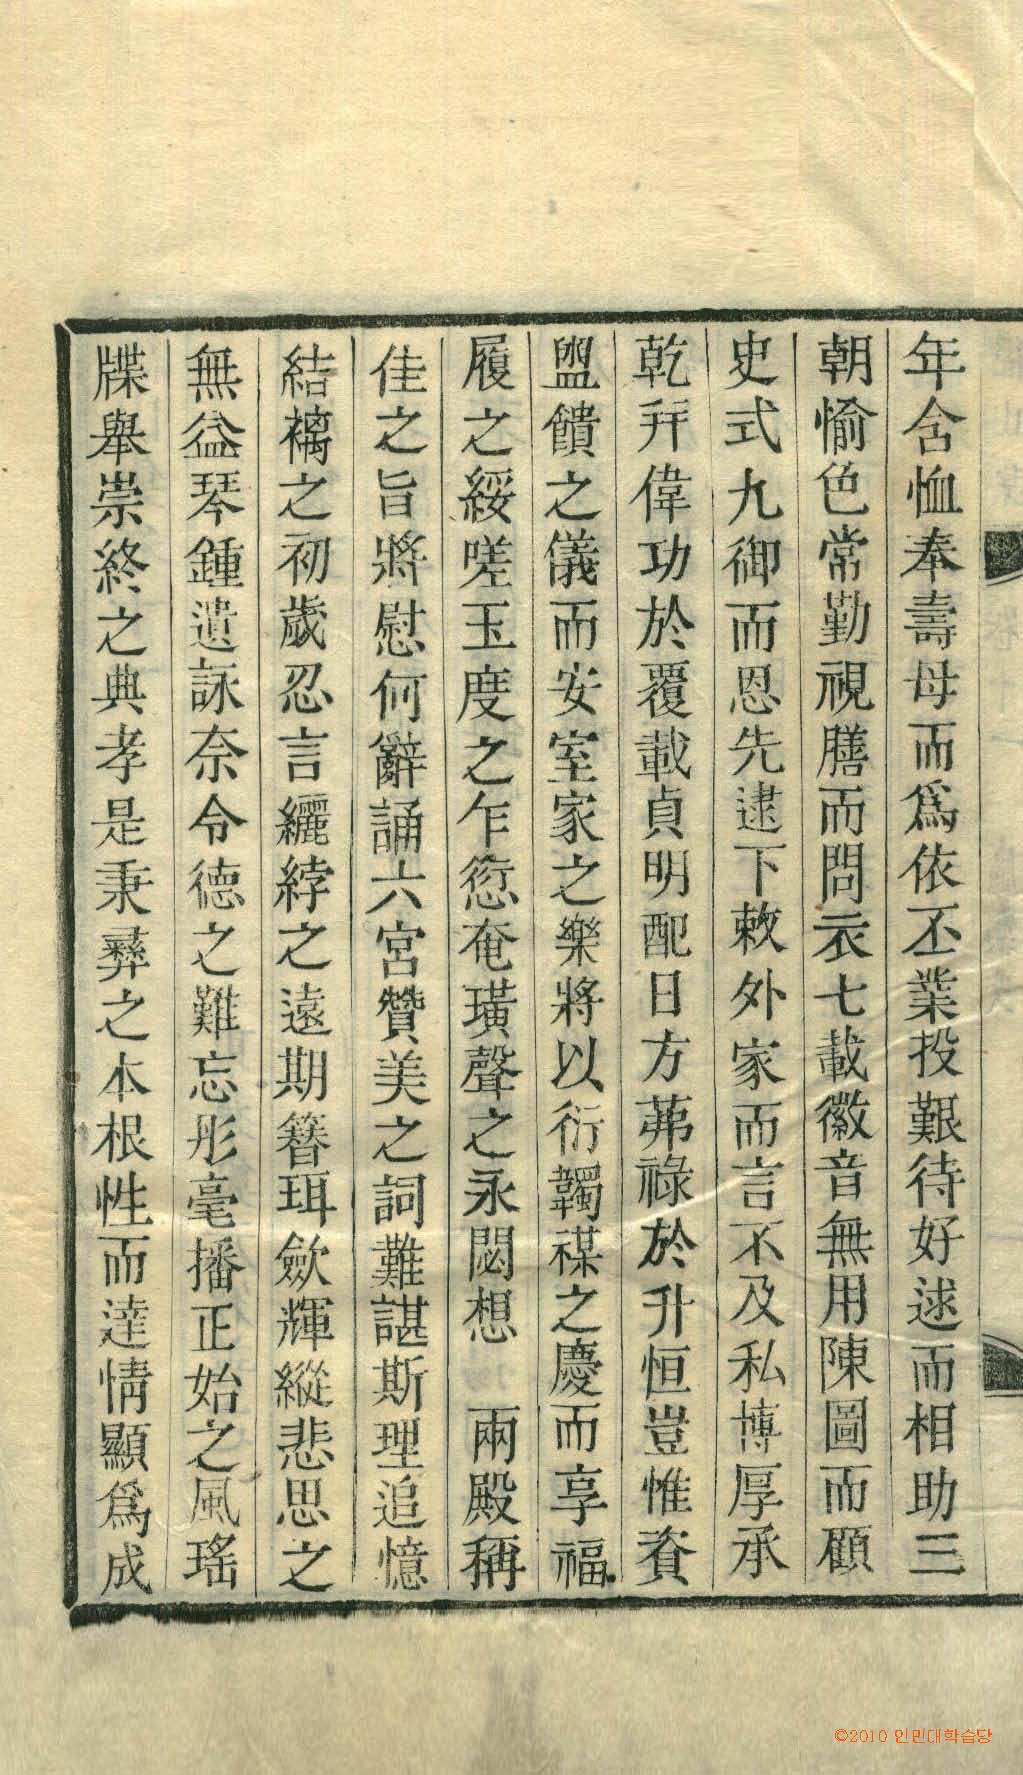 年含恤奉壽母而爲依丕業投艱待好逑而相助三
朝愉色常勤視膳而問衣七載徽音無用陳圖而顧
史式九御而恩先逮下敕外家而言不及私博厚承
乾幷偉功於覆載貞明配日方茀祿於升恒豈惟資
盥饋之儀而安室家之樂將以衍韣禖之慶而享福
履之綏嗟玉度之乍愆奄璜聲之永閟想 兩殿稱
佳之旨將慰何辭誦六宮贊美之詞難諶斯理追憶
結褵之初歲忍言纚綍之遠期簪珥歛輝縱悲思之
無益琴鍾遺詠奈令德之難忘彤毫播正始之風瑤
牒舉崇終之典孝是秉彝之本根性而達情顯爲成
©2010 인민대학습당